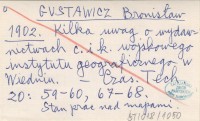 GUSTAWICZ Bronisław
1902. Kilka uwag o wydaw-
nictwach c. i k. wojskowego
instytutu geograficznego, w
Wiedniu. – Czas. Tech.
20: 59-60, 67-68.
Stan prac nad mapami.